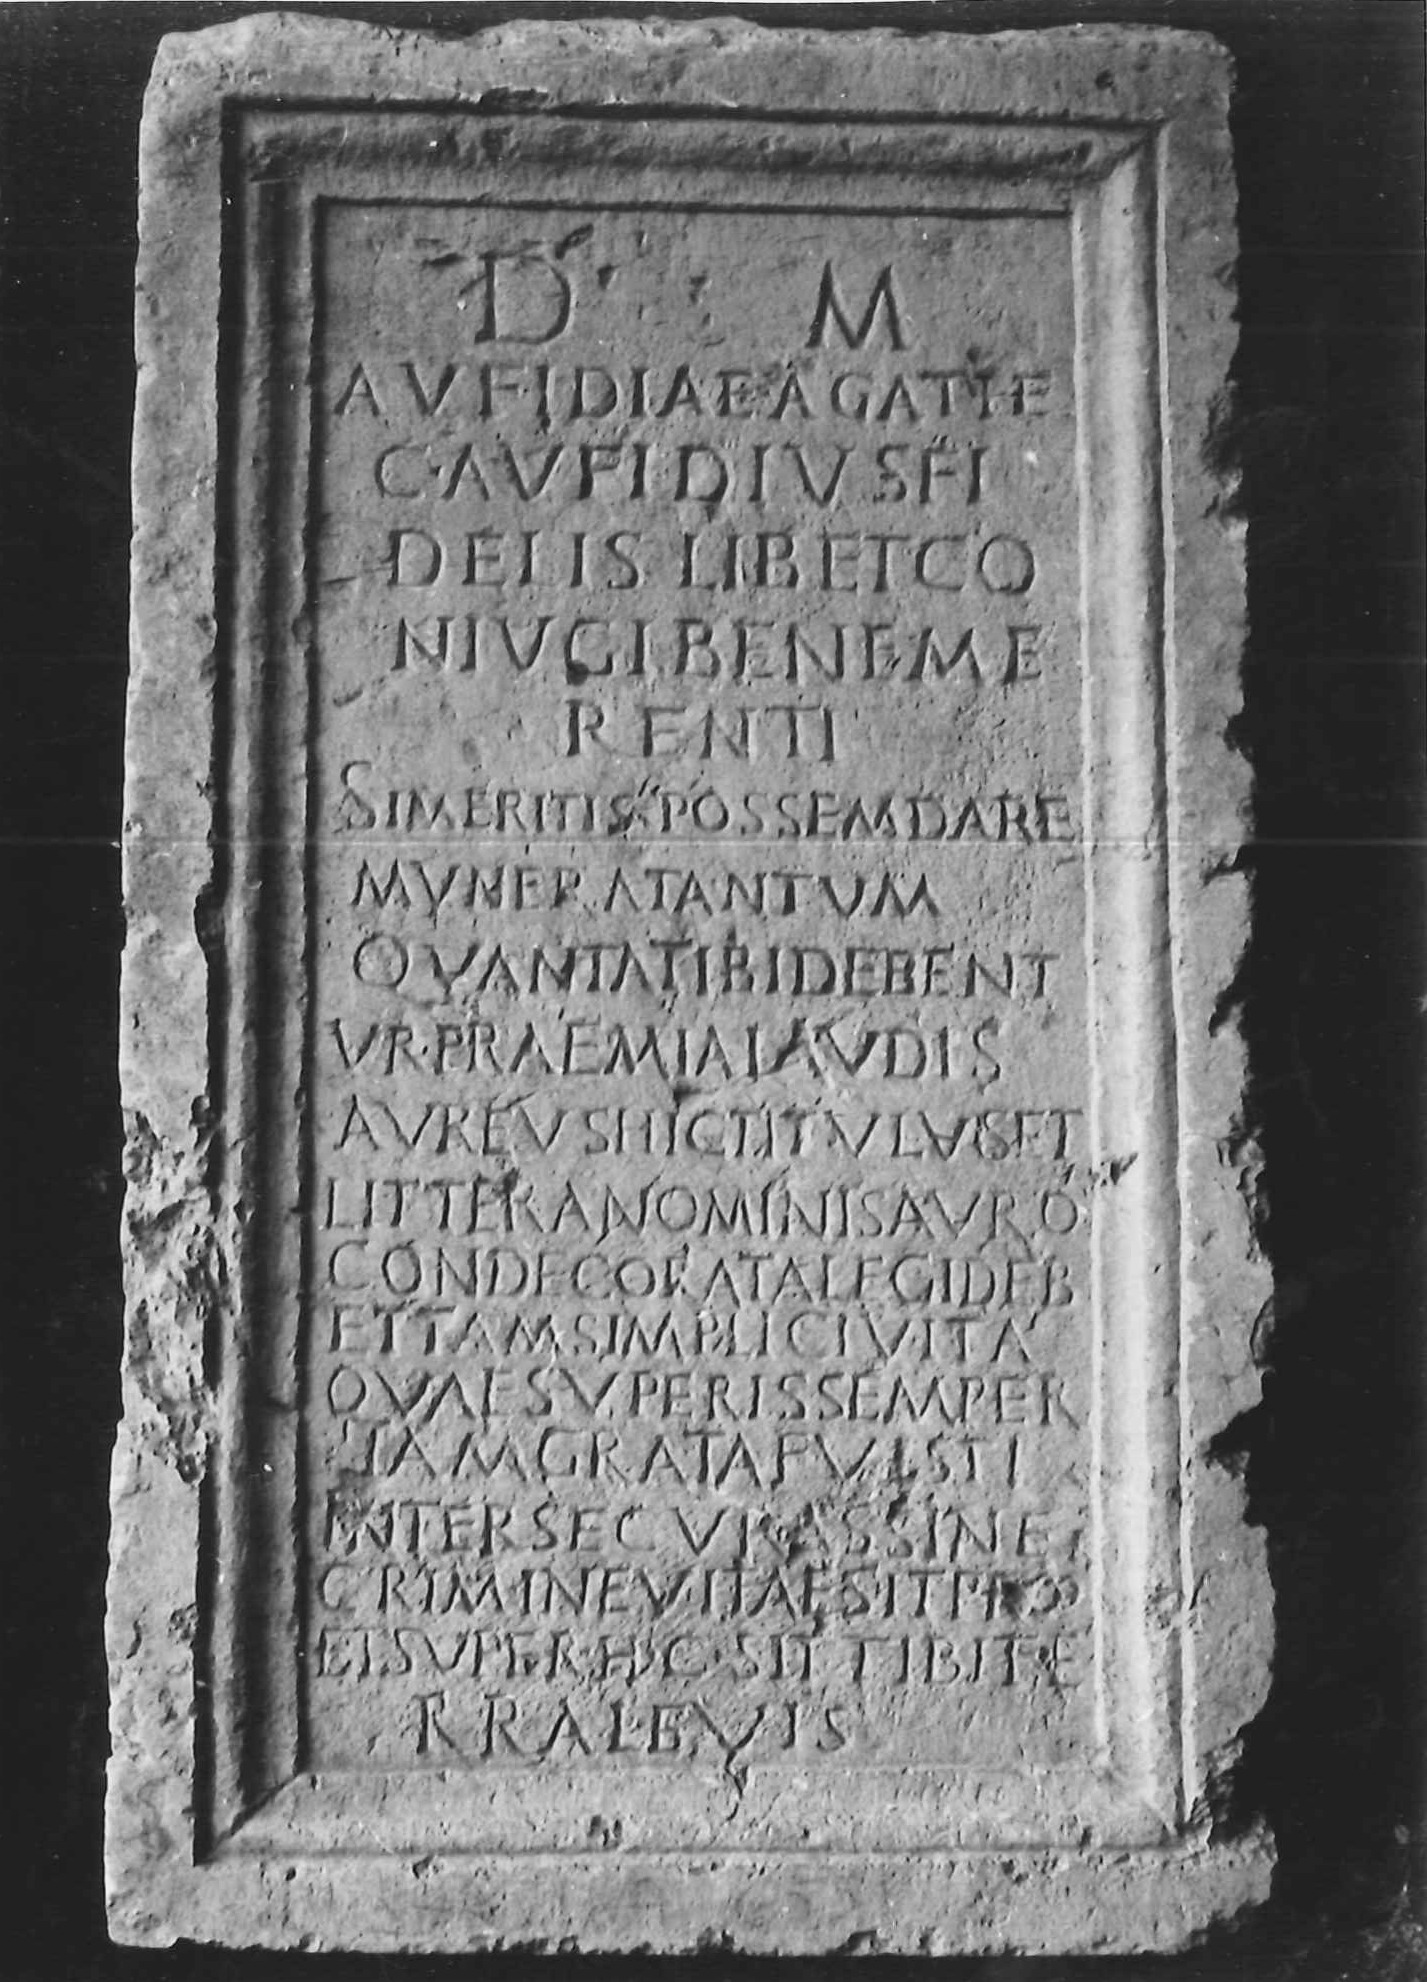 D M
AVFIDIAE AGATHE
C·AVFIDIVS FI
DELIS LIB ET CO
NIVGI BENEME
RENTI
SI MERITIS POSSEM DARE
MVNERA TANTVM
QVANTA TIBI DEBENT
VR·PRAEMIA LAVDIS
AVREVS HIC TITVLVS ET
LITTERA NOMINIS AVRO
CONDECORATA LEGI DEB
ET TAM SIMPLICI VITA
QVAE SVPERIS SEMPER
IAM GRATA FVISTI
INTER SECVRAS SINE
CRIMINE VITAE SIT PRO
ET SVPER HIC SIT TIBI TE
RRA LEVIS